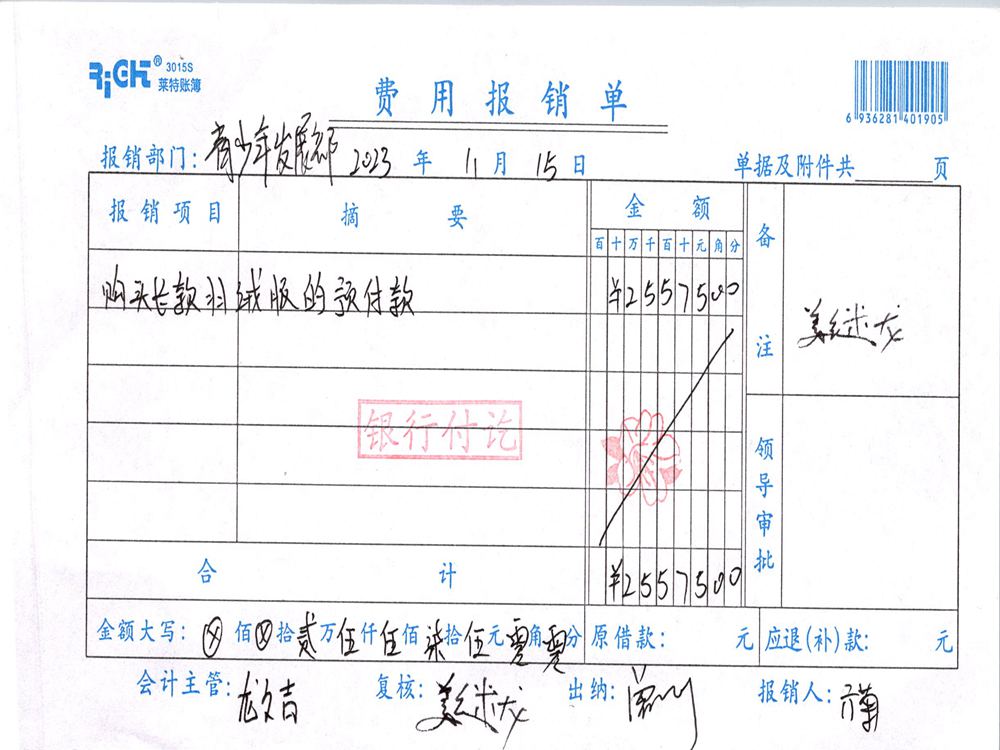 RiCHT® 3015S
莱特账簿
费用报销单
6 936281 401905
报销部门：青少年发展部 2023 年 11 月 15 日 单据及附件共 页
报销项目 摘要 金额 备注
百 十 万 千 百 十 元 角 分
购买长款羽绒服的预付款 ¥2557500
银行付讫
领导审批
合计 ¥2557500
金额大写：⊗ 佰 ⊗ 拾 贰 万 伍 仟 伍 佰 柒 拾 伍 元 零 角 零 分 原借款： 元 应退(补)款： 元
会计主管：龙文吉 复核： 出纳： 报销人：